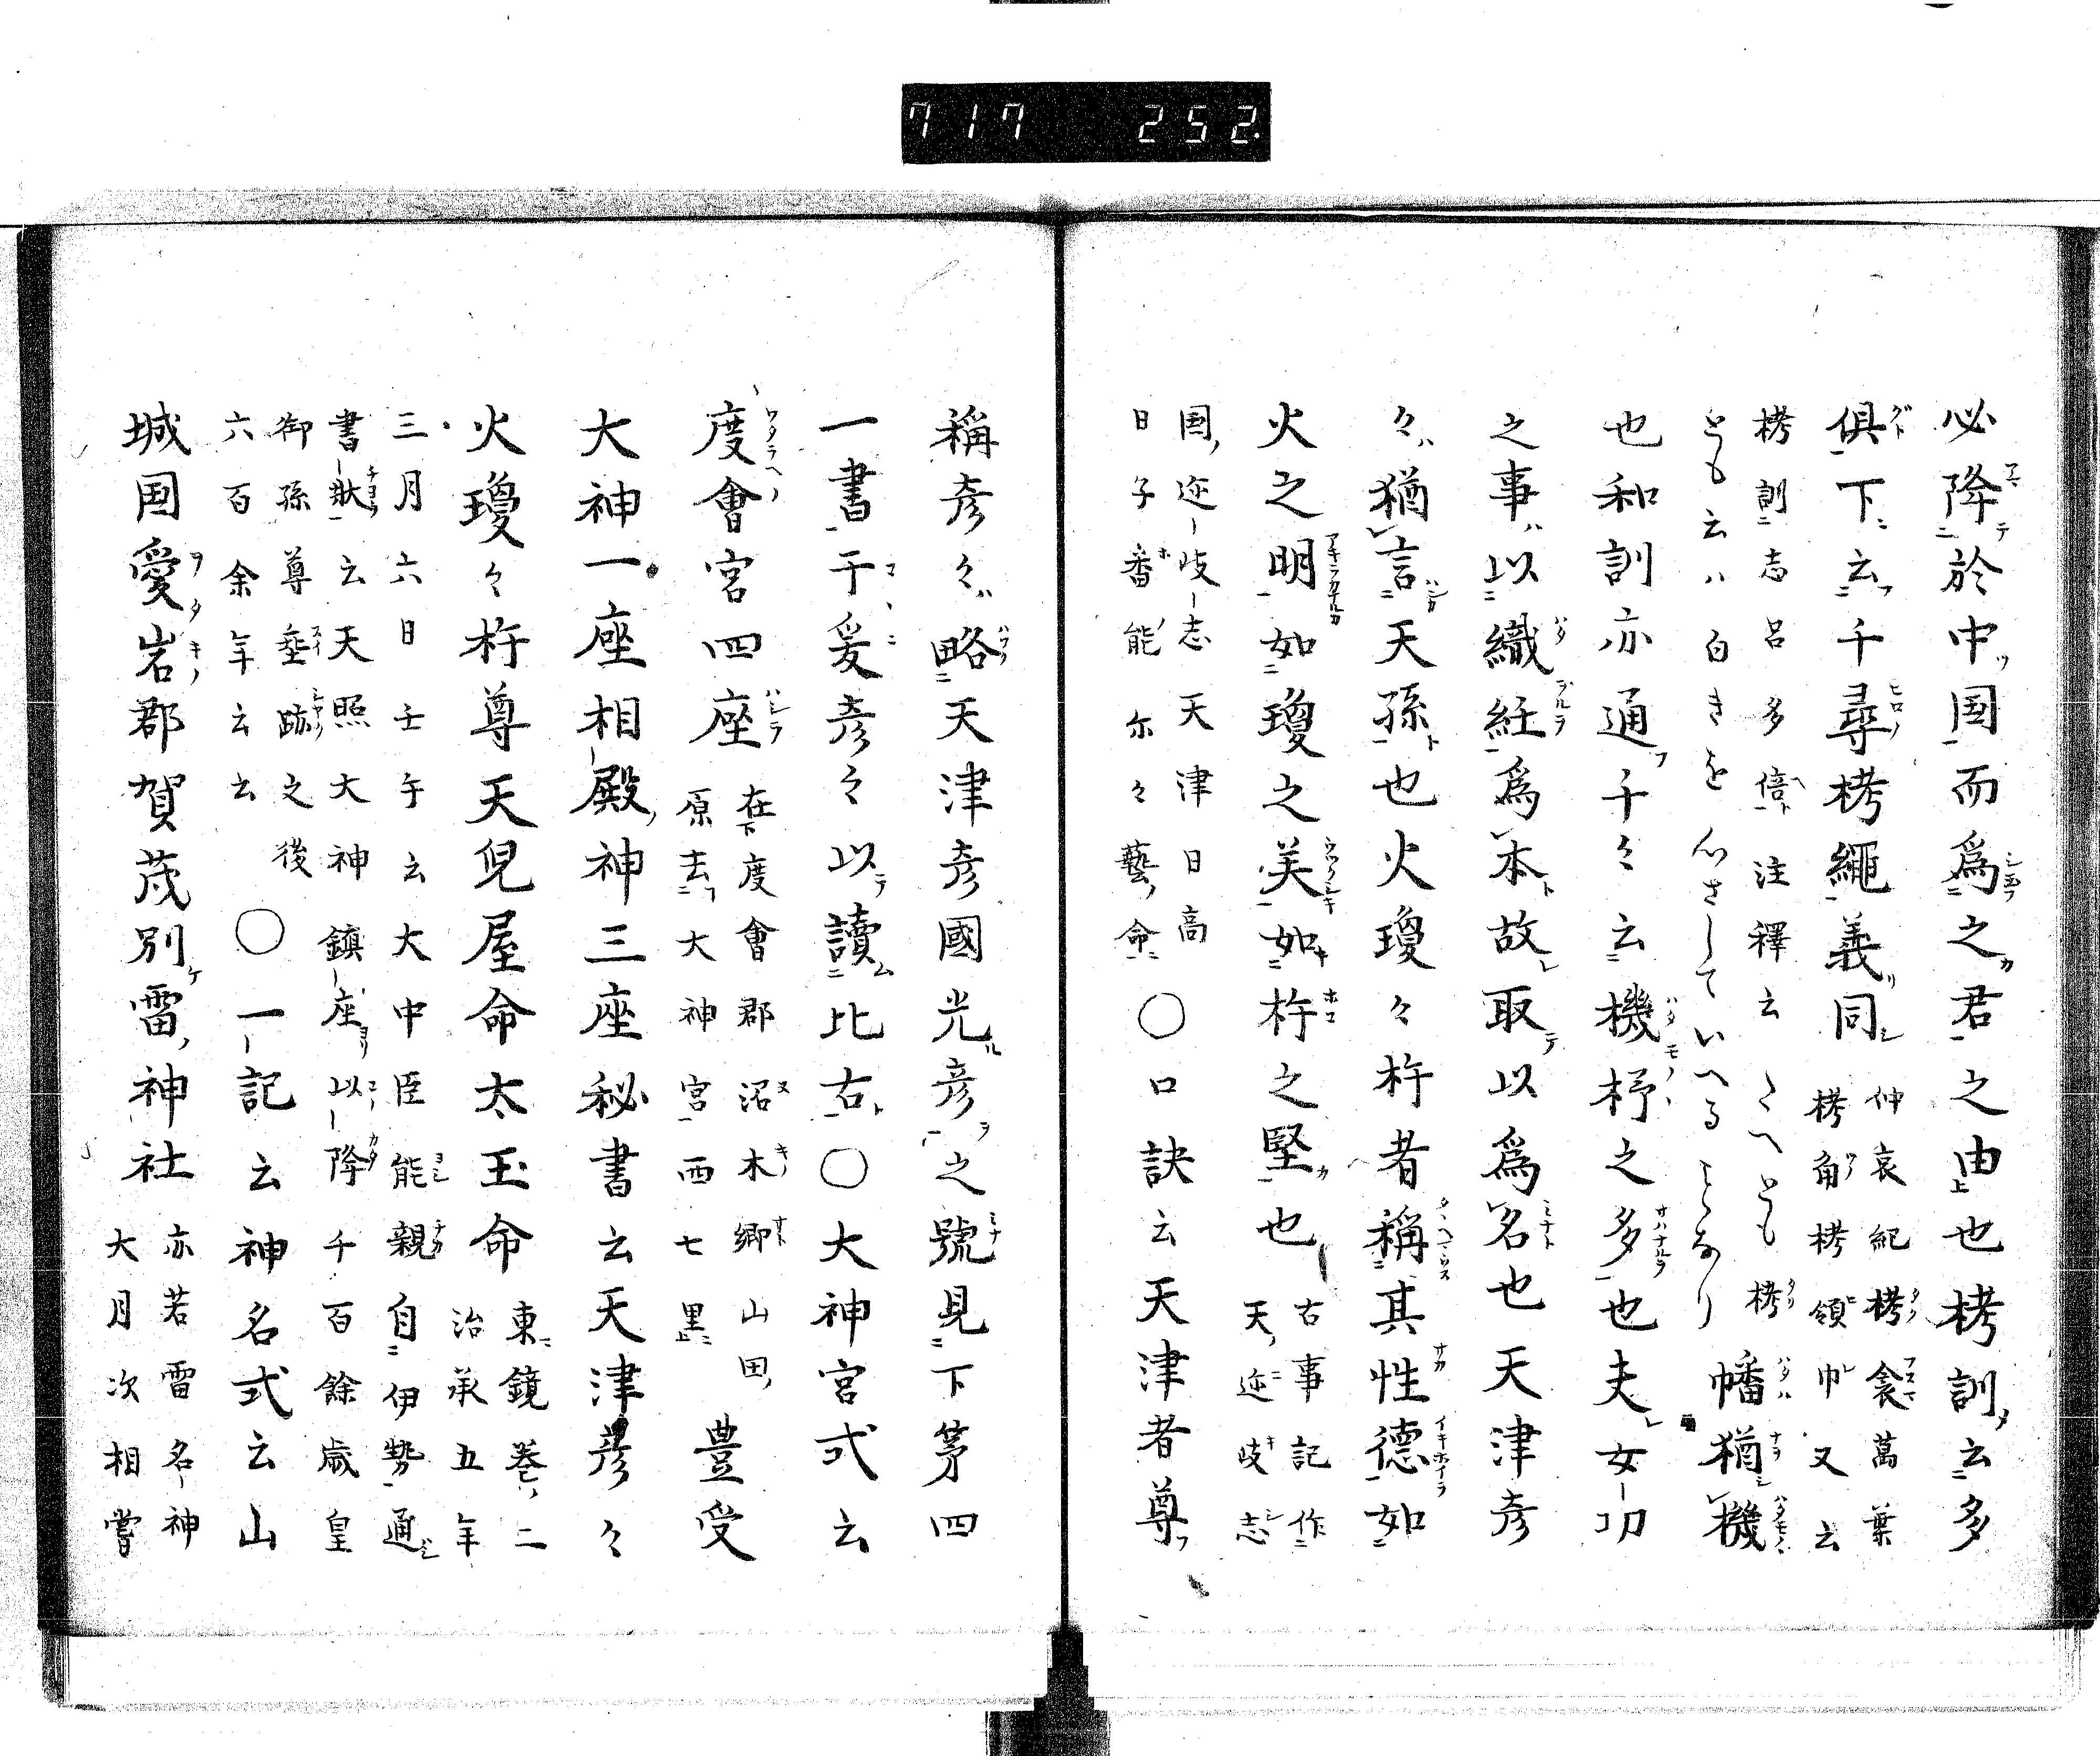 717 252
必降於中国而爲之君之由也栲訓云多
俱下云千尋栲繩義同
仲哀紀栲衾萬葉
栲角栲領巾又云
栲訓志呂多倍注釋云たへとも栲
とも云ハ白きを心さしていへることなり
幡猶機
也和訓亦通千々云機杼之多也夫女功
之事以織紝爲本故取以爲名也天津彦
々猶言天孫也火瓊々杵者稱其性德如
火之明如瓊之美如杵之堅也
古事記作
天迩岐志
国迩岐志天津日高
日子番能尓々藝命
○口訣云天津者尊
稱彦々略天津彦國光彦之號見下第四
一書于爰彦々以讀比古○大神宮式云
度會宮四座
在度會郡沼木郷山田
原去大神宮西七里
豊受
大神一座相殿神三座秘書云天津彦々
火瓊々杵尊天児屋命太玉命
東鏡巻二
治承五年
三月六日壬午云大中臣能親自伊勢通
書状云天照大神鎮座以降千百餘歳皇
御孫尊垂跡之後
六百余年云云
○一記云神名式云山
城国愛岩郡賀茂別雷神社
亦若雷名神
大月次相嘗